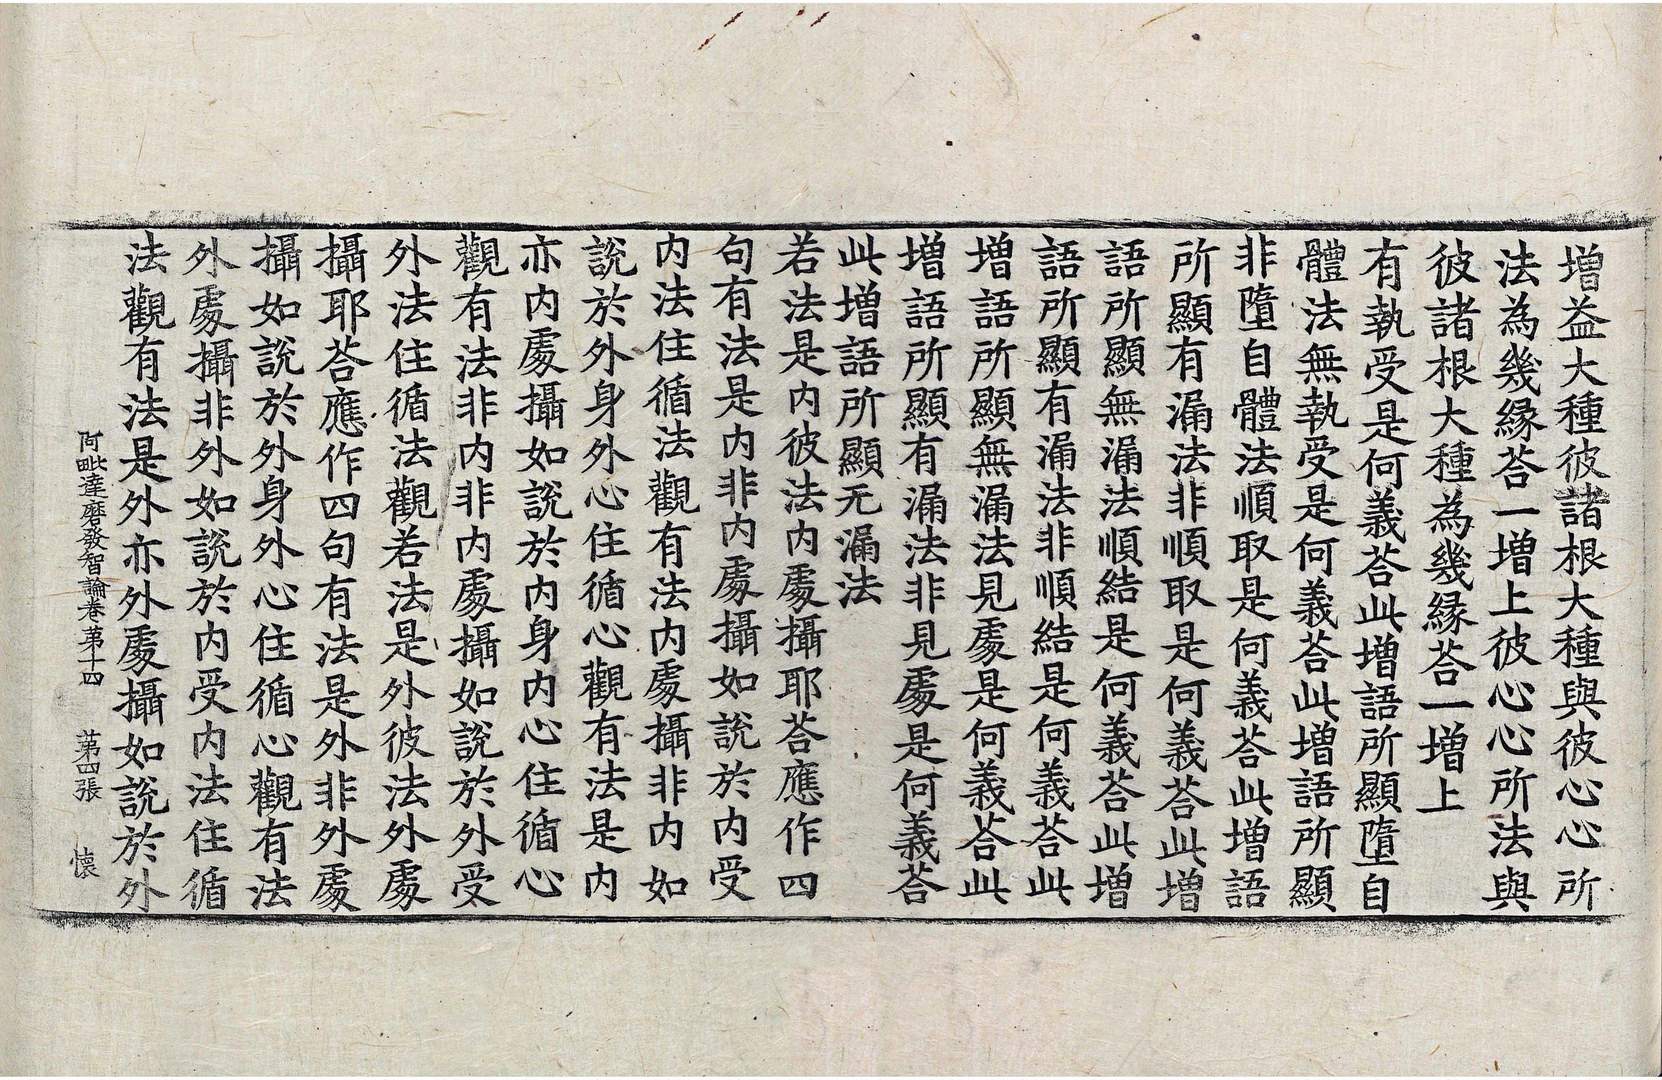 增益大種彼諸根大種與彼心心所
法為幾緣荅一增上彼心心所法與
彼諸根大種為幾緣荅一增上
有執受是何義荅此增語所顯墮自
體法無執受是何義荅此增語所顯
非墮自體法順取是何義荅此增語
所顯有漏法非順取是何義荅此增
語所顯無漏法順結是何義荅此增
語所顯有漏法非順結是何義荅此
增語所顯無漏法見處是何義荅此
增語所顯有漏法非見處是何義荅
此增語所顯无漏法
若法是內彼法內處攝耶荅應作四
句有法是內非內處攝如說於內受
內法住循法觀有法內處攝非內如
說於外身外心住循心觀有法是內
亦內處攝如說於內身內心住循心
觀有法非內非內處攝如說於外受
外法住循法觀若法是外彼法外處
攝耶荅應作四句有法是外非外處
攝如說於外身外心住循心觀有法
外處攝非外如說於內受內法住循
法觀有法是外亦外處攝如說於外
阿毗達磨發智論卷第十四 第四張 懷